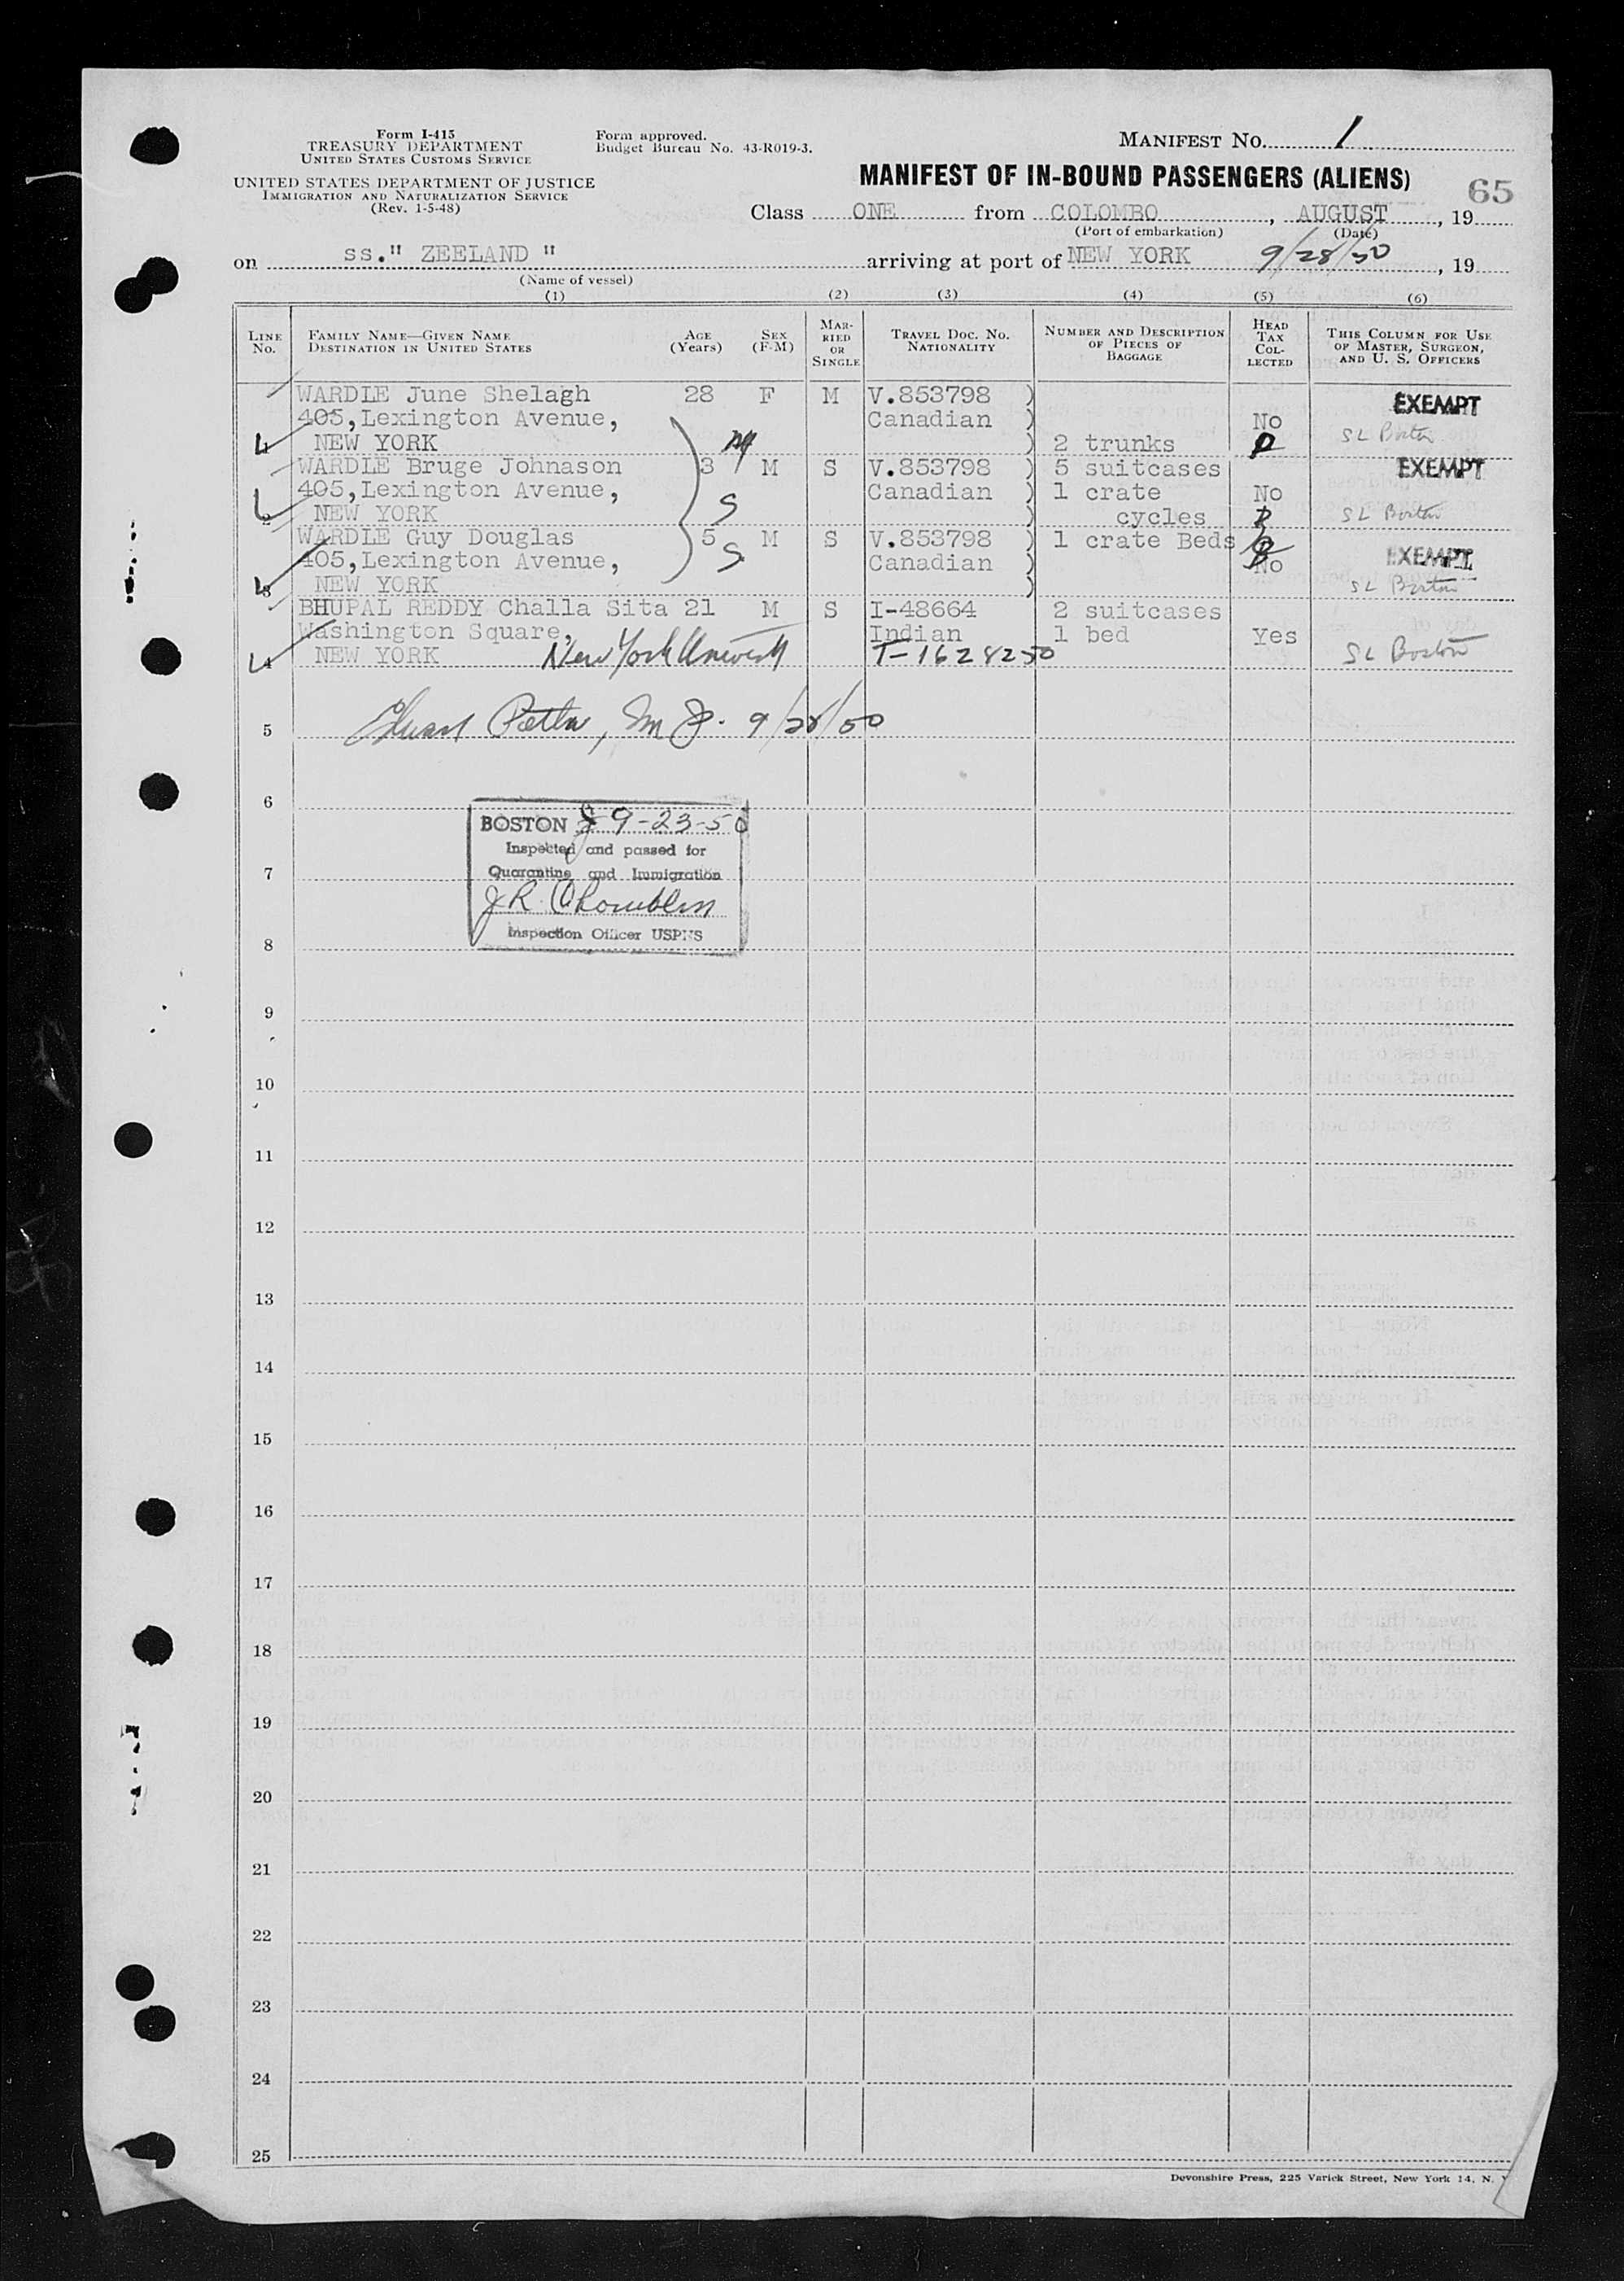 Form I-415
TREASURY DEPARTMENT
UNITED STATES CUSTOMS SERVICE
UNITED STATES DEPARTMENT OF JUSTICE
IMMIGRATION AND NATURALIZATION SERVICE
(Rev. 1-5-48)
Form approved.
Budget Bureau No. 43-R019-3.
MANIFEST NO. 1
MANIFEST OF IN-BOUND PASSENGERS (ALIENS)
65
Class ONE from COLOMBO, AUGUST, 19
(Port of embarkation) (Date)
on ss." ZEELAND " arriving at port of NEW YORK 9/28/50, 19
(Name of vessel)
(1) (2) (3) (4) (5) (6)
LINE No.
FAMILY NAME—GIVEN NAME
DESTINATION IN UNITED STATES
AGE (Years)
SEX (F-M)
MARRIED OR SINGLE
TRAVEL DOC. NO.
NATIONALITY
NUMBER AND DESCRIPTION OF PIECES OF BAGGAGE
HEAD TAX COLLECTED
THIS COLUMN FOR USE OF MASTER, SURGEON, AND U. S. OFFICERS
WARDLE June Shelagh 28 F M V.853798 ) EXEMPT
405,Lexington Avenue, Canadian ) No
NEW YORK M ) 2 trunks SL Boston
WARDLE Bruge Johnason 3 M S V.853798 ) 5 suitcases EXEMPT
405,Lexington Avenue, S Canadian ) 1 crate No
2 NEW YORK ) cycles SL Boston
WARDLE Guy Douglas 5 M S V.853798 ) 1 crate Beds
405,Lexington Avenue, S Canadian ) No EXEMPT
3 NEW YORK ) SL Boston
BHUPAL REDDY Challa Sita 21 M S I-48664 2 suitcases
Washington Square, Indian 1 bed Yes
4 NEW YORK New York University T-1628250 SL Boston
5 9/28/50
6
BOSTON 9-23-50
Inspected and passed for
Quarantine and Immigration
J R
Inspection Officer USPHS
7
8
9
10
11
12
13
14
15
16
17
18
19
20
21
22
23
24
25
Devonshire Press, 225 Varick Street, New York 14, N.